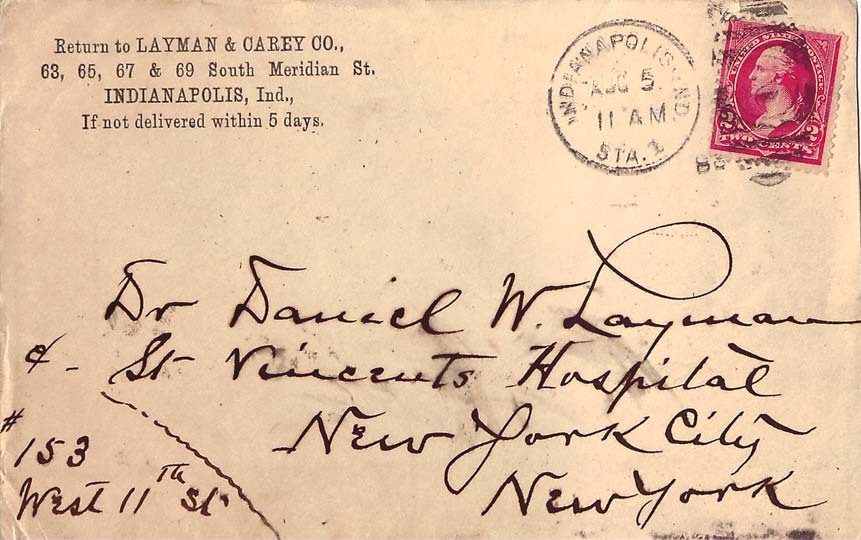 Return to LAYMAN & CAREY CO.,
63, 65, 67 & 69 South Meridian St.
INDIANAPOLIS, Ind.,
If not delivered within 5 days.
INDIANAPOLIS, IND.
AUG 5
11 AM
STA. 1
UNITED STATES POSTAGE
2 2
TWO CENTS
Dr Daniel W. Layman
¢ - St Vincents Hospital
New York City
New York
# 153
West 11th St